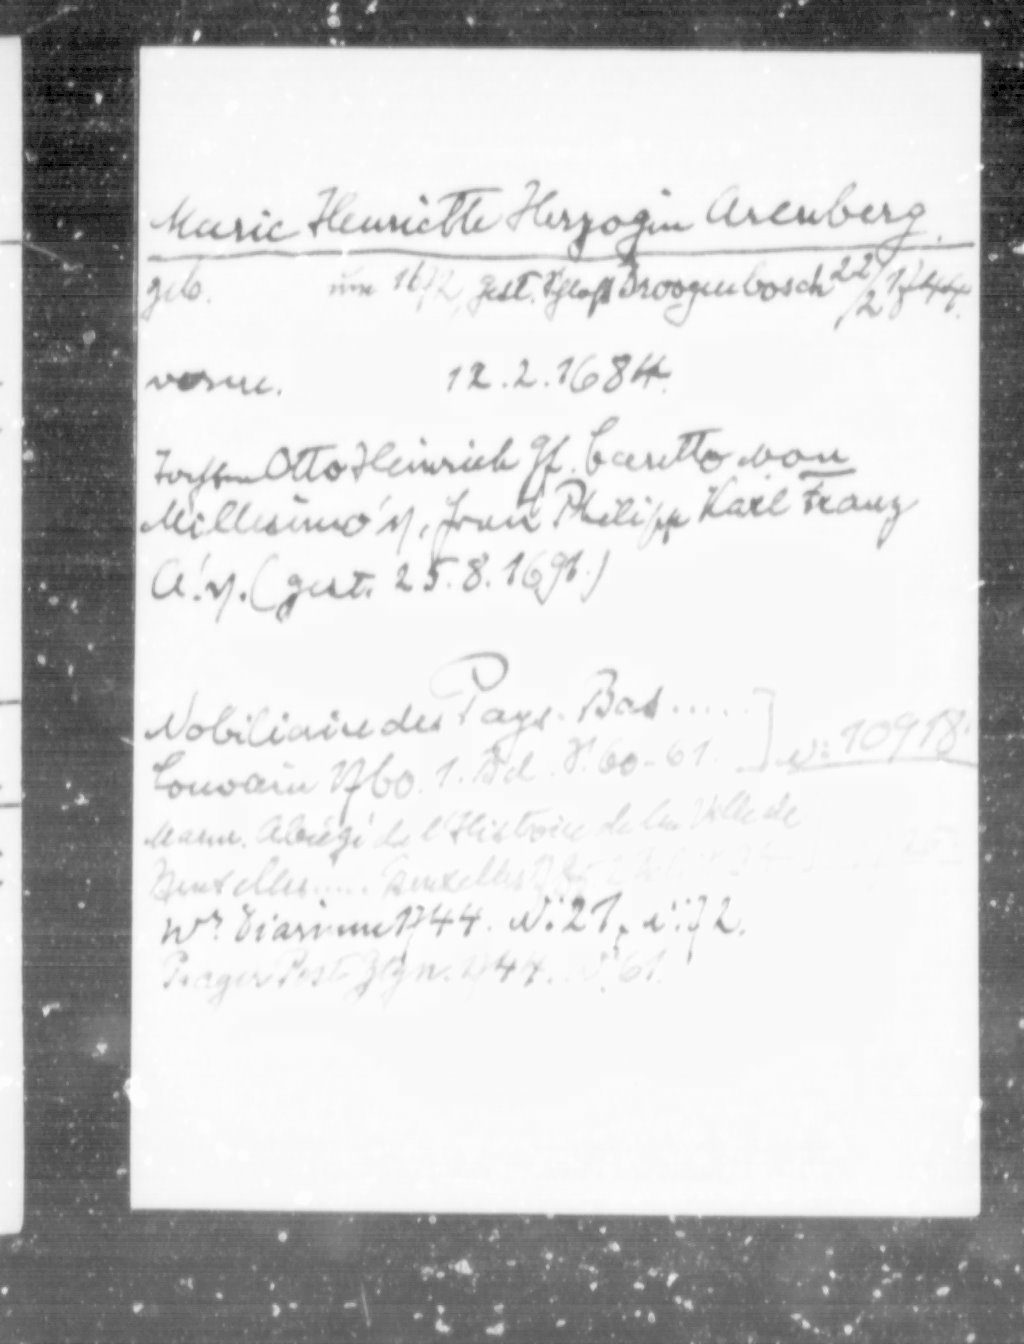 Marie Henriette Herzogin Arenberg.
geb. um 1672, gest. Schloß Droogenbosch 22/2 1744.
verm. 12.2.1684.
Tochter Otto Heinrich Gf. Caretto von
Millesimo's, Frau Philipp Karl Franz
A.'s. (gest. 25.8.1691.)
Nobiliaire des Pays-Bas.....
Louvain 1760. 1. Bd. S. 60-61. ] N: 10918.
Mann. Abrégé de l'Histoire de la Ville de
Bruxelles..... Bruxelles
Wr. Diarium 1744. N: 21, N: 72.
Prager Post Ztgn. 1744. N: 61.